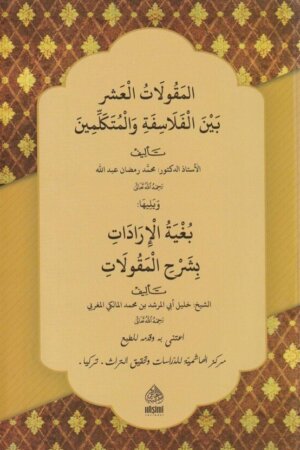 المَقُولَاتُ الْعَشْر
بَيْنَ الْفَلَاسِفَةِ وَالْمُتَكَلِّمِينَ
تأليف
الأستاذ الدكتور: محمَّد رمضان عبد الله
رَحِمَهُ اللهُ تَعَالَى
وَيَلِيهَا:
بُغْيَةُ الْإِرَادَاتِ
بِشَرْحِ الْمَقُولَاتِ
تأليف
الشيخ: خليل أبي المرشد بن محمد المالكي المغربي
رَحِمَهُ اللهُ تَعَالَى
اعتنى به وقدمه للطبع
مركز الهاشمية للدراسات وتحقيق التراث . تركيا .
HÂŞİMİ